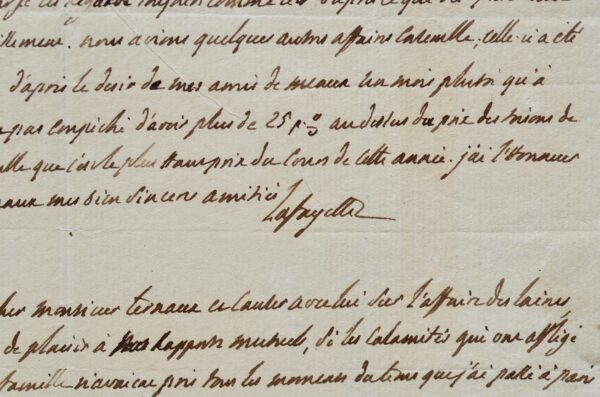 nous avions quelques autres affaires ensemble, celle ci a été
d'après le desir de mes amis de meaux un mois plustot qu'à
pas empêché d'avoir plus de 25 p.% au dessus du prix des miens de
que c'est le plus haut prix du cours de cette année. j'ai l'honneur
mes bien sinceres amitiés
Lafayette
monsieur ternaux et causer avec lui sur l'affaire des laines
de plaisir à nos rapports mutuels, si les calamités qui ont affligé
famille n'avaient pris tous les momens du tems que j'ai passé à paris